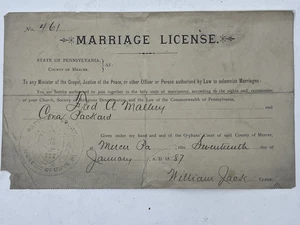 No. 461
MARRIAGE LICENSE.
STATE OF PENNSYLVANIA,
COUNTY OF MERCER
To any Minister of the Gospel, Justice of the Peace, or other Officer or Person authorized by Law to solemnize Marriages:
You are hereby authorized to join together in the holy state of matrimony, according to the rights and ceremonies
of your Church, Society or Religious Denomination, and the Law of the Commonwealth of Pennsylvania,
Fred A and
Cora Packard
Given under my hand and seal of the Orphans' Court of said County of Mercer,
at Mercer Pa this Seventeenth day of
January A. D. 1887
William Jack